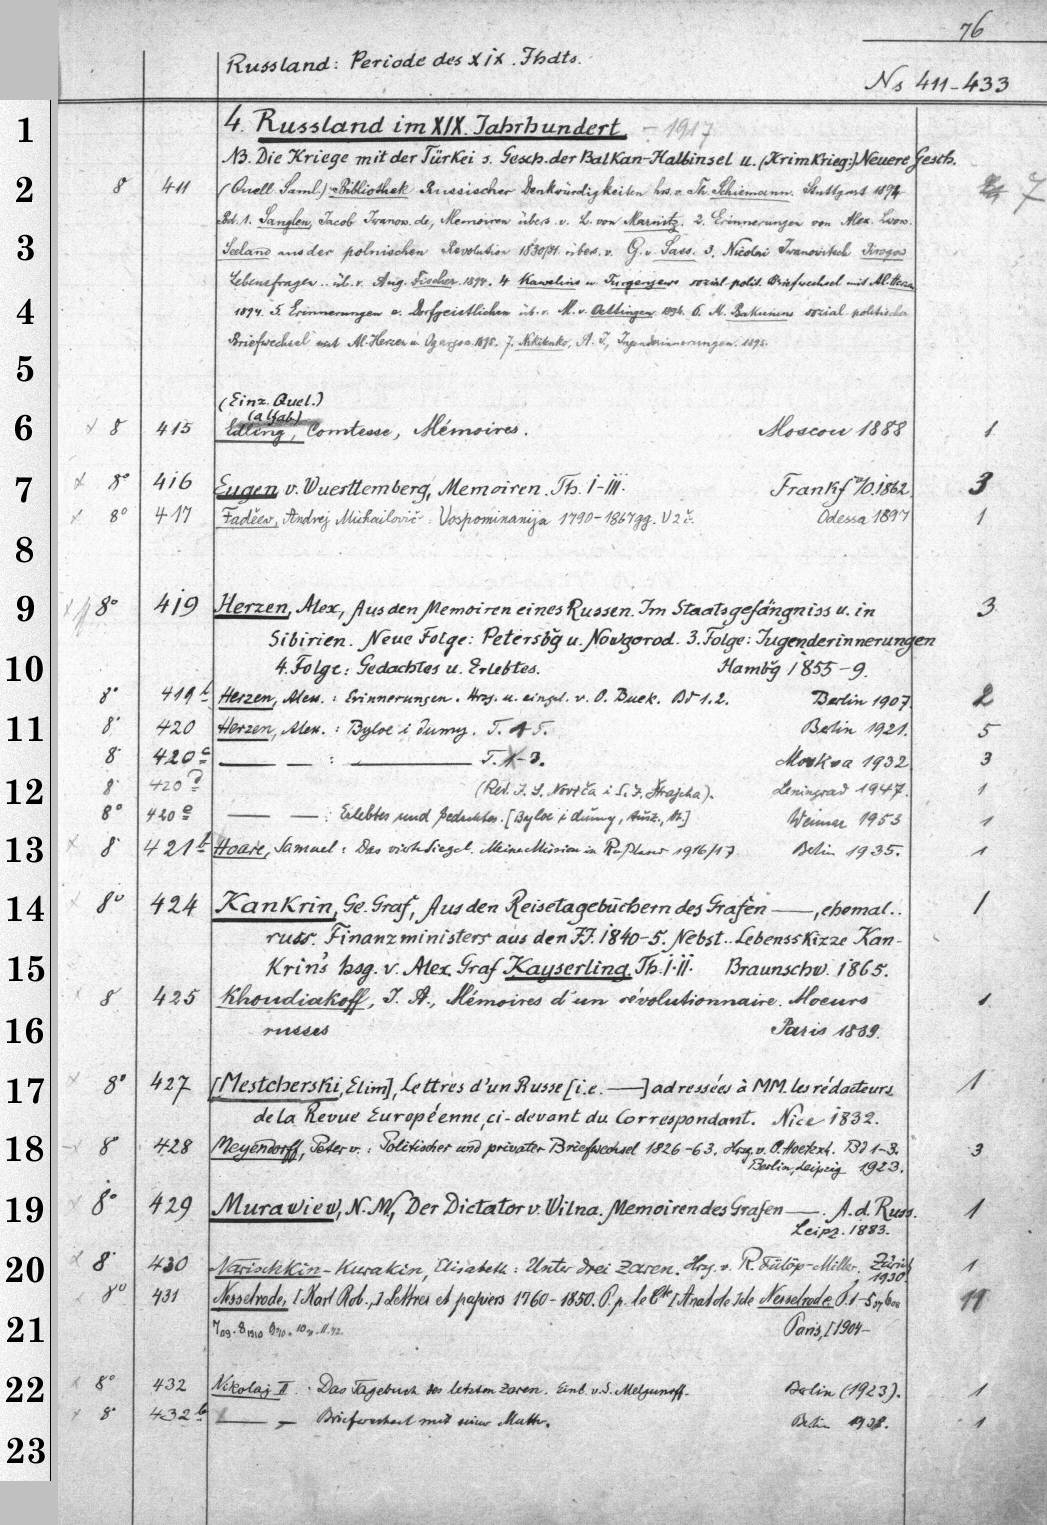 76
Russland: Periode des XIX. Jhdts.
Ns 411-433
1 4. Russland im XIX. Jahrhundert - 1917
NB. Die Kriege mit der Türkei s. Gesch. der Balkan-Halbinsel u. (Krimkrieg:) Neuere Gesch.
2 8 411 (Quell. Saml.) Bibliothek Russischer Denkwürdigkeiten hrs. v. Th. Schiemann. Stuttgart 1894 7
Bd. 1. Sanglen, Jacob Iwanow. de, Memoiren übers. v. L. von Marnitz. 2. Erinnerungen von Alex.
3 Seeland aus der polnischen Revolution 1830/31 übers. v. G. v. Sass. 3. Nicolai Iwanovitsch Pirogow
Lebensfragen .. üb. v. Aug. Fischer. 1894. 4 Kawelins u. Turgenjews sozial-polit. Briefwechsel mit Al. Herzen
4 1894. 5. Erinnerungen e. Dorfgeistlichen üb. v. M. v. Oettingen 1894. 6. M. Bakunins sozial-politischer
Briefwechsel mit Al. Herzen u. Ogarjow. 1895. 7. Nikitenko, A. I., Jugenderinnerungen. 1895.
5
(Einz. Quel.)
(alfab)
6 x 8 415 Edling, Comtesse, Mémoires. Moscou 1888 1.
7 x 8° 416 Eugen v. Wuerttemberg, Memoiren. Th. I-III. Frankf a/O. 1862. 3
x 8° 417 Faděev, Andrej Michailovič. Vospominanija 1790-1867 gg. V 2 č. Odessa 1897 1
8
9 x 8° 419 Herzen, Alex, Aus den Memoiren eines Russen. Im Staatsgefängniss u. in 3
Sibirien. Neue Folge: Petersbg u. Nowgorod. 3. Folge: Jugenderinnerungen
10 4. Folge: Gedachtes u. Erlebtes. Hambg 1855-9.
8° 419 b Herzen, Alex. : Erinnerungen. Hrsg. u. eingel. v. O. Buek. Bd 1.2. Berlin 1907. 2
11 8° 420 Herzen, Alex. : Byloe i dumy. T. 1-5. Berlin 1921. 5
8° 420 c —— — : ———— T. 1-3. Moskva 1932 3
12 8° 420 d (Red. I. S. Noviča i S. J. Štrajcha). Leningrad 1947. 1
8° 420 e —— — : Erlebtes und Gedachtes. [Byloe i dumy, Ausz., dt.] Weimar 1953 1
13 x 8° 421 b Hoare, Samuel : Das vierte Siegel. Meine Mission in Rußland 1916/17 Berlin 1935. 1
14 8° 424 Kankrin, Ge. Graf, Aus den Reisetagebüchern des Grafen ——, ehemal.. 1
russ. Finanzministers aus den JJ. 1840-5. Nebst.. Lebensskizze Kan-
15 krin's hsg. v. Alex. Graf Kayserling. Th. I-II. Braunschw. 1865.
8 425 Khoudiakoff, J. A., Mémoires d'un révolutionnaire. Moeurs 1
16 russes Paris 1889.
17 x 8° 427 [Mestcherski, Elim], Lettres d'un Russe [i.e. ——] adressées à MM. les rédacteurs 1
de la Revue Européenne, ci-devant du Correspondant. Nice 1832.
18 8 428 Meyendorff, Peter v. : Politischer und privater Briefwechsel 1826-63. Hrsg. v. O. Hoetzsch. Bd 1-3. 3
Berlin, Leipzig 1923.
19 8° 429 Murawiew, N. M, Der Dictator v. Wilna. Memoiren des Grafen ——. A. d. Russ. 1
Leipz. 1883.
20 x 8° 430 Narischkin-Kurakin, Elisabeth : Unter drei Zaren. Hrsg. v. R. Fülöp-Miller. Zürich 1
1930
8° 431 Nesselrode, [Karl Rob.,] Lettres et papiers 1760-1850. P. p. le Cte [Anatole] de Nesselrode. T. 1-5 11
21 7 09. 8 1910 9 10. 10. 11. 12. Paris, [1904-
22 x 8° 432 Nikolaj II. : Das Tagebuch des letzten Zaren. Einl. v. S. Melgunoff. Berlin (1923). 1
x 8° 432 b —— — Briefwechsel mit seiner Mutter. Berlin 1938. 1
23